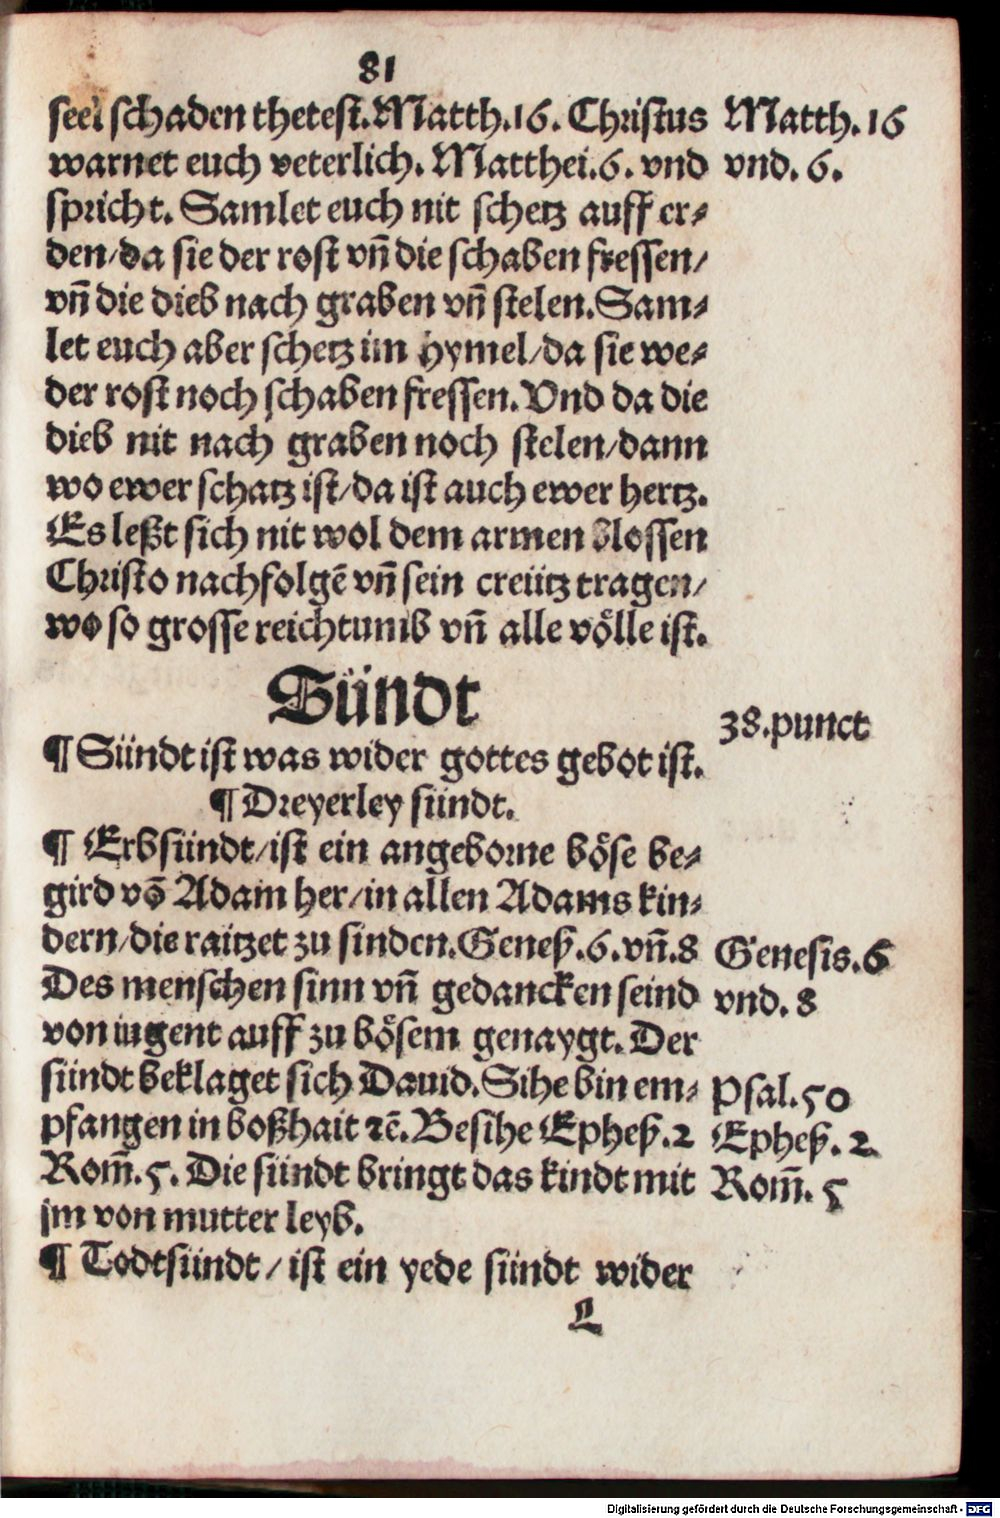 81
seel schaden thetest. Matth.16. Christus
warnet euch veterlich. Matthei.6. vnd
spricht. Samlet euch nit schetz auff er⸗
den/da sie der rost vñ die schaben fressen/
vñ die dieb nach graben vñ stelen. Sam⸗
let euch aber schetz im hymel/da sie we⸗
der rost noch schaben fressen. Vnd da die
dieb nit nach graben noch stelen/dann
wo ewer schatz ist/da ist auch ewer hertz.
Es leßt sich nit wol dem armen blossen
Christo nachfolgẽ vñ sein creütz tragen/
wo so grosse reichtumb vñ alle völle ist.
Matth.16
vnd.6.
Sündt
38.punct
¶ Sündt ist was wider gottes gebot ist.
¶ Dreyerley sündt.
¶ Erbsündt/ist ein angeborne böse be⸗
gird võ Adam her/in allen Adams kin⸗
dern/die raitzet zu sinden. Geneß.6.vñ.8
Des menschen sinn vñ gedancken seind
von iugent auff zu bösem genaygt. Der
sündt beklaget sich Dauid. Sihe bin em⸗
pfangen in boßhait ꝛc̃. Besihe Epheß.2
Rom̃.5. Die sündt bringt das kindt mit
jm von mutter leyb.
¶ Todtsündt/ist ein yede sündt wider
Genesis.6
vnd.8
Psal.50
Epheß.2
Rom̃.5
L
Digitalisierung gefördert durch die Deutsche Forschungsgemeinschaft - DFG